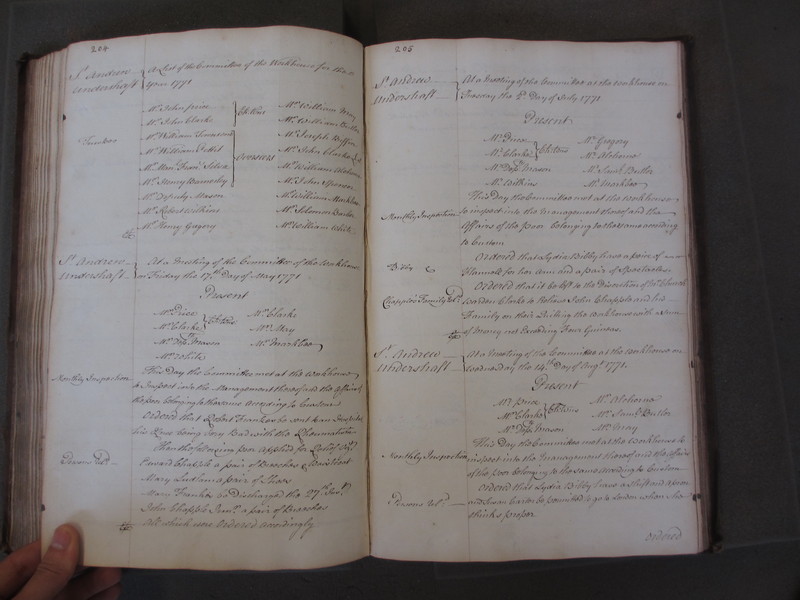 204
St. Andrew Undershaft
A List of the Committee of the Workhouse for the Year 1771
Trustees
Mr. John Price
Mr. John Clarke
Ch: Wdns
Mr. William
Mr. William
Mr.
Mr. Henry
Overseers
Mr. Deputy Mason
Mr. Robert Wilkins
Mr. Henry Gregory
Mr. William May
Mr. William Butler
Mr. Joseph
Mr. John Clarke
Mr. William
Mr. John Spencer
Mr. William Marklove
Mr. Solomon
Mr. William White
St. Andrew Undershaft
At a Meeting of the Committee of the Workhouse
on Friday the 17th. Day of May 1771
Present
Mr. Price
Mr. Clarke
Ch: Wdns
Mr. Depy. Mason
Mr. White
Mr. Clarke
Mr. May
Mr. Marklove
Monthly Inspection
This Day the Committee met at the Workhouse
to Inspect into the Management thereof and the Affairs of
the poor belonging to the same according to Custom
Ordered that Robert Franker be sent to an Hospital
his Knee being Very Bad with the Rheumatism
The following poor applied for
Persons Reld.
Edward Chapple a pair of Breeches &
Mary Ludlam a pair of Shoes
Mary Franker be Discharged the 27th.
John Chapple Junr. a pair of Breeches
All which were Ordered accordingly
205
St. Andrew Undershaft
At a Meeting of the Committee at the Workhouse on
Tuesday the 2d. Day of July 1771
Present
Mr. Price
Mr. Clarke
Ch: Wdns
Mr. Depy. Mason
Mr. Wilkins
Mr. Gregory
Mr. Alsborne
Mr. Saml. Butler
Mr. Marklove
Monthly Inspection
This Day the Committee met at the Workhouse
to inspect into the Management thereof and the
Affairs of the Poor belonging to the same according
to Custom
Bibby
Ordered that Lydia Bibby have a piece of
Flannell for her Arm and a pair of Spectacles
Chapple's Family Reld.
Ordered that it be left to the Discretion of Mr. Church
warden Clarke to Relieve John Chapple and his
Family on their Quitting the Workhouse with a Sum
of Money not Exceeding Four Guineas
St. Andrew Undershaft
At a Meeting of the Committee at the Workhouse on
Wednesday the 14th. Day of Augt. 1771
Present
Mr. Price
Mr. Clarke
Ch: Wdns
Mr. Depy. Mason
Mr. Alsborne
Mr. Saml. Butler
Mr. May
Monthly Inspection
This Day the Committee met at the Workhouse to
inspect into the Management thereof and the Affairs
of the poor belonging to the same according to Custom
Persons Reld.
Ordered that Lydia Bibby have a Shift and apron
and Susan be permitted to go to London when she
thinks proper
Ordered